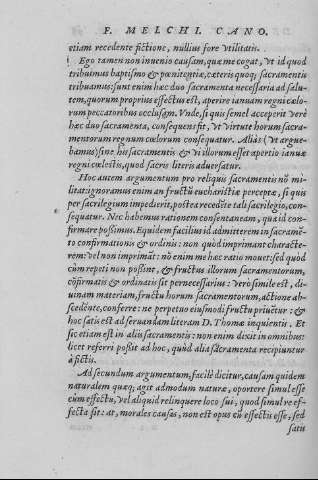 F. MELCHI. CANO.
etiam recedente fictione, nullius fore vtilitatis.
Ego tamen non inuenio causam, quæ me cogat, vt id quod
tribuimus baptismo & pœnitentiæ, cæteris quoq; sacramentis
tribuamus: sunt enim hæc duo sacramenta necessaria ad salu-
tem, quorum proprius effectus est, aperire ianuam regni cælo-
rum peccatoribus occlusam. Vnde, si quis semel acceperit verè
hæc duo sacramenta, consequens fit, vt virtute horum sacra-
mentorum regnum cœlorum consequatur. Aliàs (vt argue-
bamus) sine his sacramentis & vi illorum esset apertio ianuæ
regni cœlestis, quod sacris literis aduersatur.
Hoc autem argumentum pro reliquis sacramentis nō mi-
litat: ignoramus enim an fructū eucharistiæ perceptæ, si quis
per sacrilegium impedierit, postea recedēte tali sacrilegio, con-
sequatur. Nec habemus rationem consentaneam, qua id con-
firmare possimus. Equidem facilius id admitterem in sacramē-
to confirmationis & ordinis: non quòd imprimant characte-
rem: vel non imprimāt: nō enim me hæc ratio mouet: sed quòd
cùm repeti non possint, & fructus illorum sacramentorum,
cōfirmatis & ordinatis sit pernecessarius: verò simile est, di-
uinam materiam, fructu horum sacramentorum, actione ab-
scedēte, conferre: ne perpetuo eiusmodi fructu priuētur: &
hoc satis est ad seruandam literam D. Thomæ inquientis. Et
sic etiam est in aliis sacramentis: non enim dixit in omnibus:
licet referri possit ad hoc, quòd alia sacramenta recipiuntur
à fictis.
Ad secundum argumentum, facilè dicitur, causam quidem
naturalem quæq; agit admodum naturæ, oportere simul esse
cùm effectu, vel aliquid relinquere loco sui, quod simul re ef-
fecta sit: at, morales causas, non est opus cū effectis esse, sed
satis